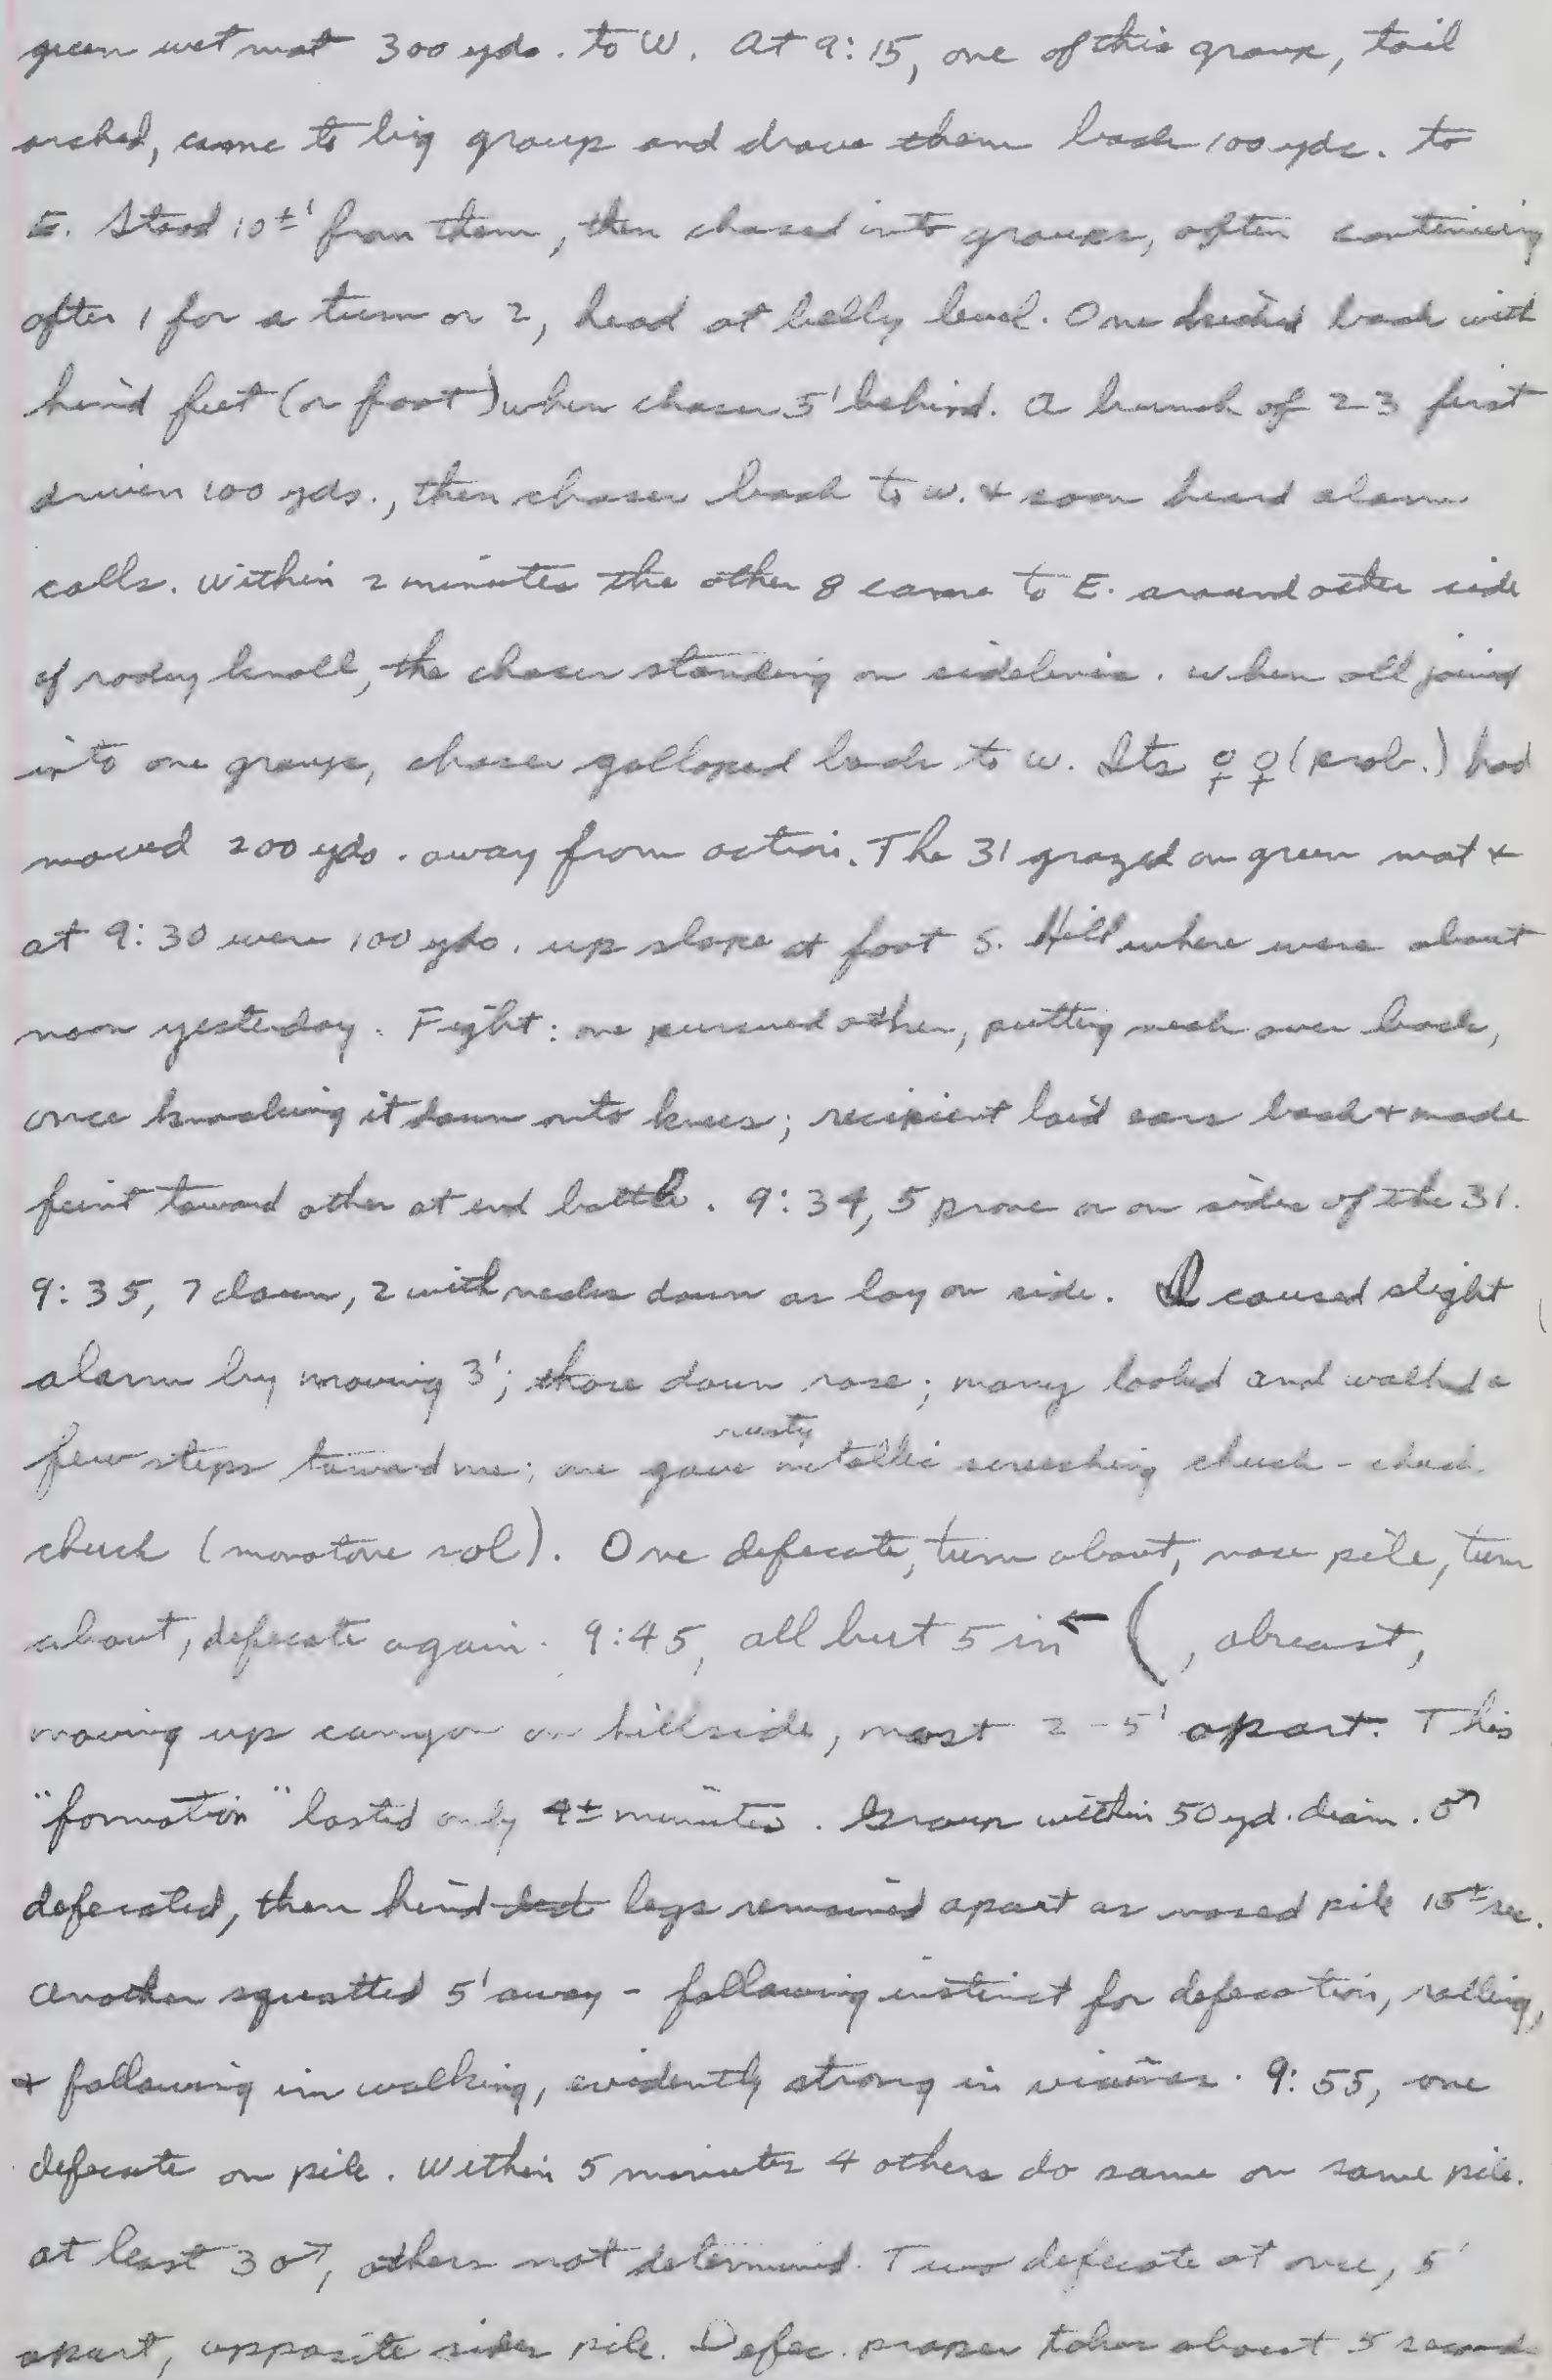 green wet mat 300 yds. to W. At 9:15, one of this group, tail
arched, came to big group and drove them back 100 yds. to
E. Stood 10±' from them, then chased into groups, often continuing
after 1 for a turn or 2, head at belly level. One kicked back with
hind feet (or foot) when chaser 5' behind. A bunch of 23 first
driven 100 yds., then chaser back to W. & soon heard alarm
calls. Within 2 minutes the other 8 came to E. around other side
of rocky knoll, the chaser standing on sidelines. When all joined
into one group, chaser galloped back to W. Its ♀♀ (prob.) had
moved 200 yds. away from action. The 31 grazed on green mat &
at 9:30 were 100 yds. up slope at foot S. Hill where were about
noon yesterday. Fight: one pursued other, putting neck over back,
once knocking it down onto knees; recipient laid ears back & made
feint toward other at end battle. 9:34, 5 prone or on sides of the 31.
9:35, 7 down, 2 with necks down as lay on side. I caused slight
alarm by moving 3'; those down rose; many looked and walked a
few steps toward me; one gave rusty metallic screeching chuck - chuck
chuck (monotone sol). One defecate, turn about, nose pile, turn
about, defecate again. 9:45, all but 5 in ← (, abreast,
moving up canyon on hillside, most 2-5' apart. This
"formation" lasted only 4± minutes. Group within 50 yd. diam. ♂
defecated, then hind legs remained apart as nosed pile 15± sec.
Another squatted 5' away - following instinct for defecation, rolling,
& following in walking, evidently strong in vicunas. 9:55, one
defecate on pile. Within 5 minutes 4 others do same on same pile.
At least 3 ♂, others not determined. Two defecate at once, 5'
apart, opposite sides pile. Defec. proper takes about 5 seconds